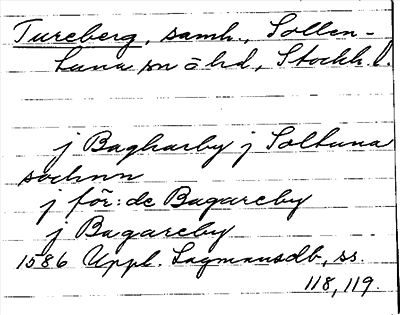 Tureberg, samh., Sollen-
tuna sn o hd, Stockh. l.
j Bagharby j Soltuna
sochnn
j för: de Bagareby
j Bagareby
1586 Uppl. Lagmansdb, ss.
118, 119.